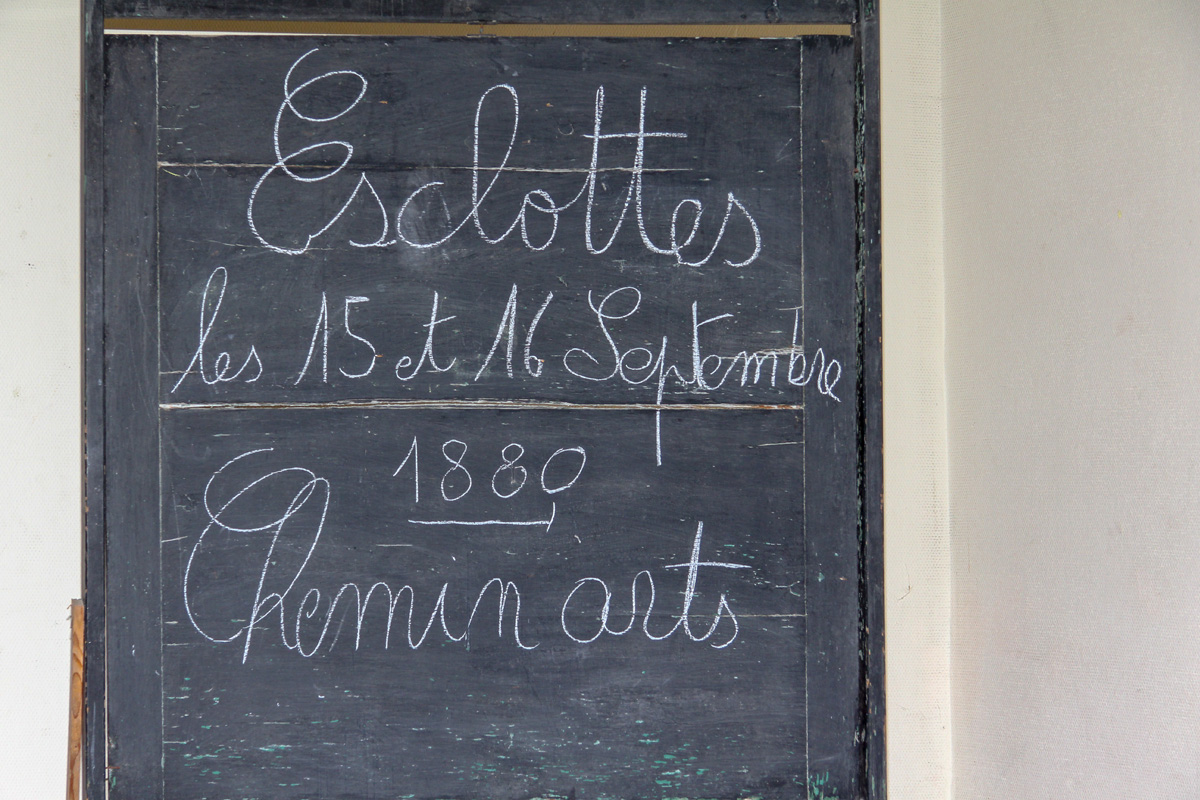 Esclottes
les 15 et 16 Septembre
1880
Chemin arts